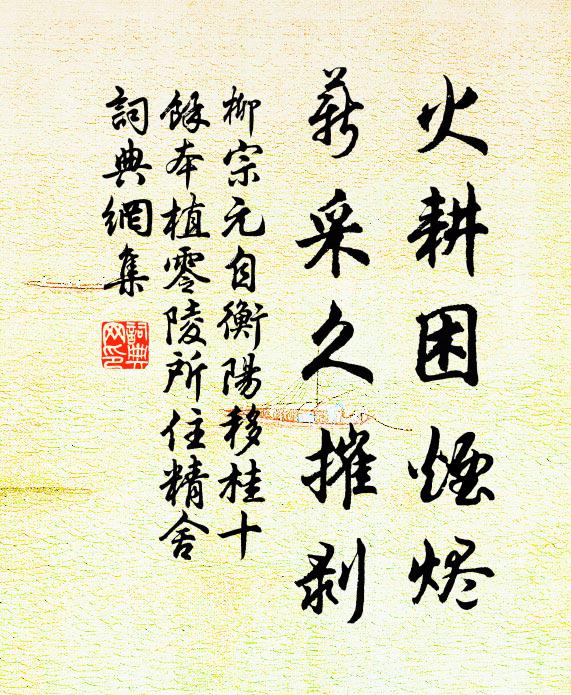 火耕困煙燼
薪采久摧剝
柳宗元自衡陽移桂十
餘本植零陵所住精舍
詞典網集
詞典
网印